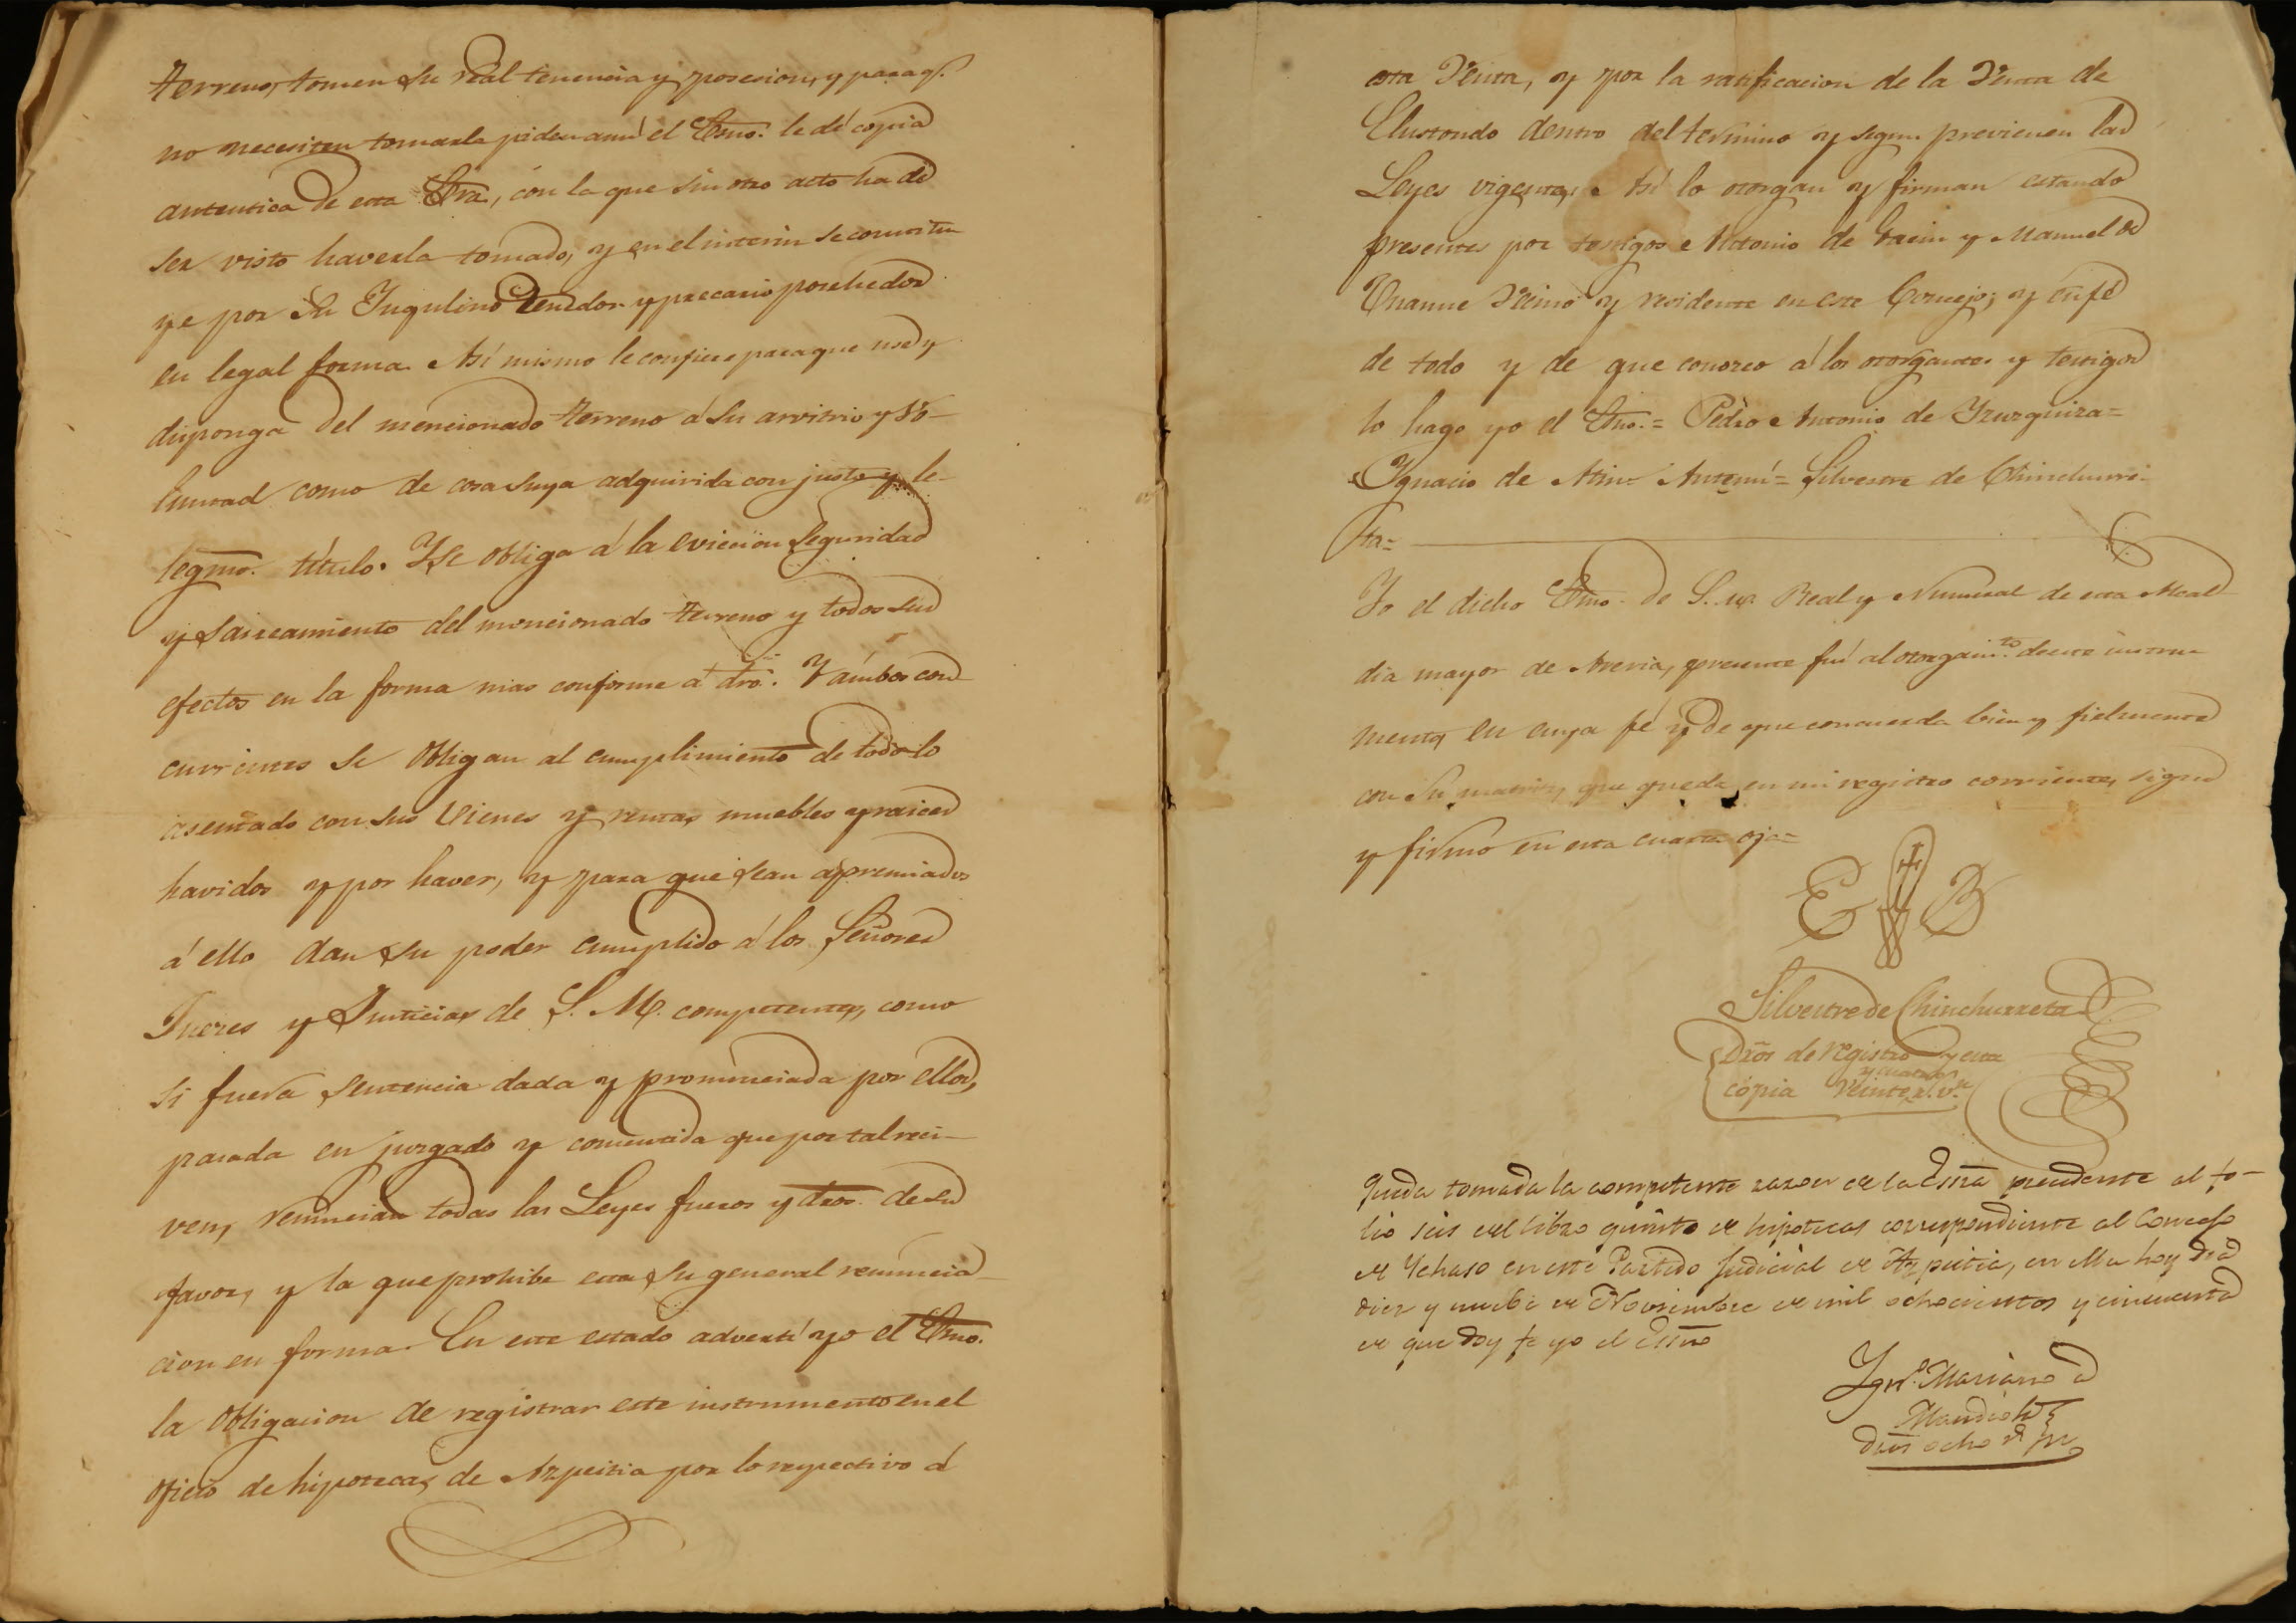 terreno, tomen su real tenencia y posesion, y para q.e
no necesiten tomarla piden amí el Esno. le dé copia
autentica de esta Esra., con la que sin otro acto ha de
ser visto haverla tomado, y en el interin se constitu
ye por su Inquilino Tenedor y precario posehedor
en legal forma. Asi mismo le confiere para que use y
disponga del mencionado terreno á su arvitrio y vo-
luntad como de cosa suya adquirida con justo y le-
legmo. título. Y se obliga á la eviccion seguridad
y saneamiento del moncionado terreno y todos sus
efectos en la forma mas conforme á dro. Y ámbos con
currentes se obligan al cumplimiento de todo lo
asentado con sus vienes y rentas muebles y raices
havidos y por haver, y para que sean apremiados
á ello dan su poder cumplido á los Señores
Jueces y Justicias de S. M. competentes, como
si fuera sentencia dada y pronunciada por ellos,
pasada en juzgado y consentida que por tal reci-
ven, renuncian todas las Leyes fueros y dros. de su
favor, y la que prohibe esta su general renuncia-
cion en forma. En este estado advertí yo el Esno.
la obligacion de registrar este instrumento en el
oficio de hipotecas de Azpeitia por lo respectivo á
esta Venta, y por la ratificacion de la Venta de
Elustondo dentro del termino y segun previenen las
Leyes vigentes. Asi lo otorgan y firman estando
presentes por testigos Antonio de y Manuel de
Unanue Vecino y residente en este Concejo; y en fé
de todo y de que conozco á los otorgantes y testigos
lo hago yo el Esno.= Pedro Antonio de Yzurquiza=
Ygnacio de Atin= Antemí= Silvestre de Chinchurre-
ta=
Yo el dicho Esno. de S. M. Real y Numeral de esta Alcal
dia mayor de Areria, presente fuí al otorgam.to de este instru-
mento, en cuya fé y de que concuerda bien y fielmente
con su matriz, que queda en mi registro corriente, signo
y firmo en esta cuarta oja=
E B
Silvestre de Chinchurreta
Dros de registro y esta
y cuatro
copia veinte r.s v.n
Queda tomada la competente razon de la Essra precedente al fo-
lio seis del libro quinto de hipotecas correspondiente al Concejo
de Ychaso en este Partido Judicial de Azpeitia, en ella hoy dia
diez y nuebe de Noviembre de mil ochocientos y cincuenta
de que doy fe yo el Essno
Ygn.o Mariano de
Mendiola
dros ocho r.s